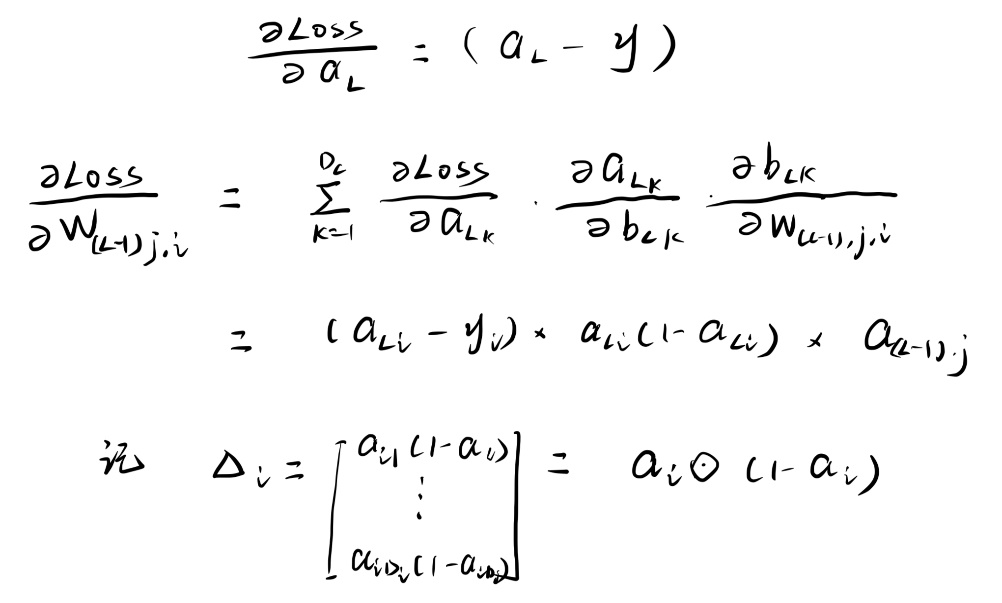 ∂Loss/∂a_L = (a_L - y)
∂Loss/∂W_{(L-1)j,i} = Σ_{k=1}^{D_L} ∂Loss/∂a_{Lk} · ∂a_{Lk}/∂b_{Lk} · ∂b_{Lk}/∂W_{(L-1),j,i}
= (a_{Li} - y_i) × a_{Li}(1-a_{Li}) × a_{(L-1),j}
记 Δ_i = [a_{i1}(1-a_{i}) ⋮ a_{iD_i}(1-a_{iD_i})] = a_i ⊙ (1-a_i)